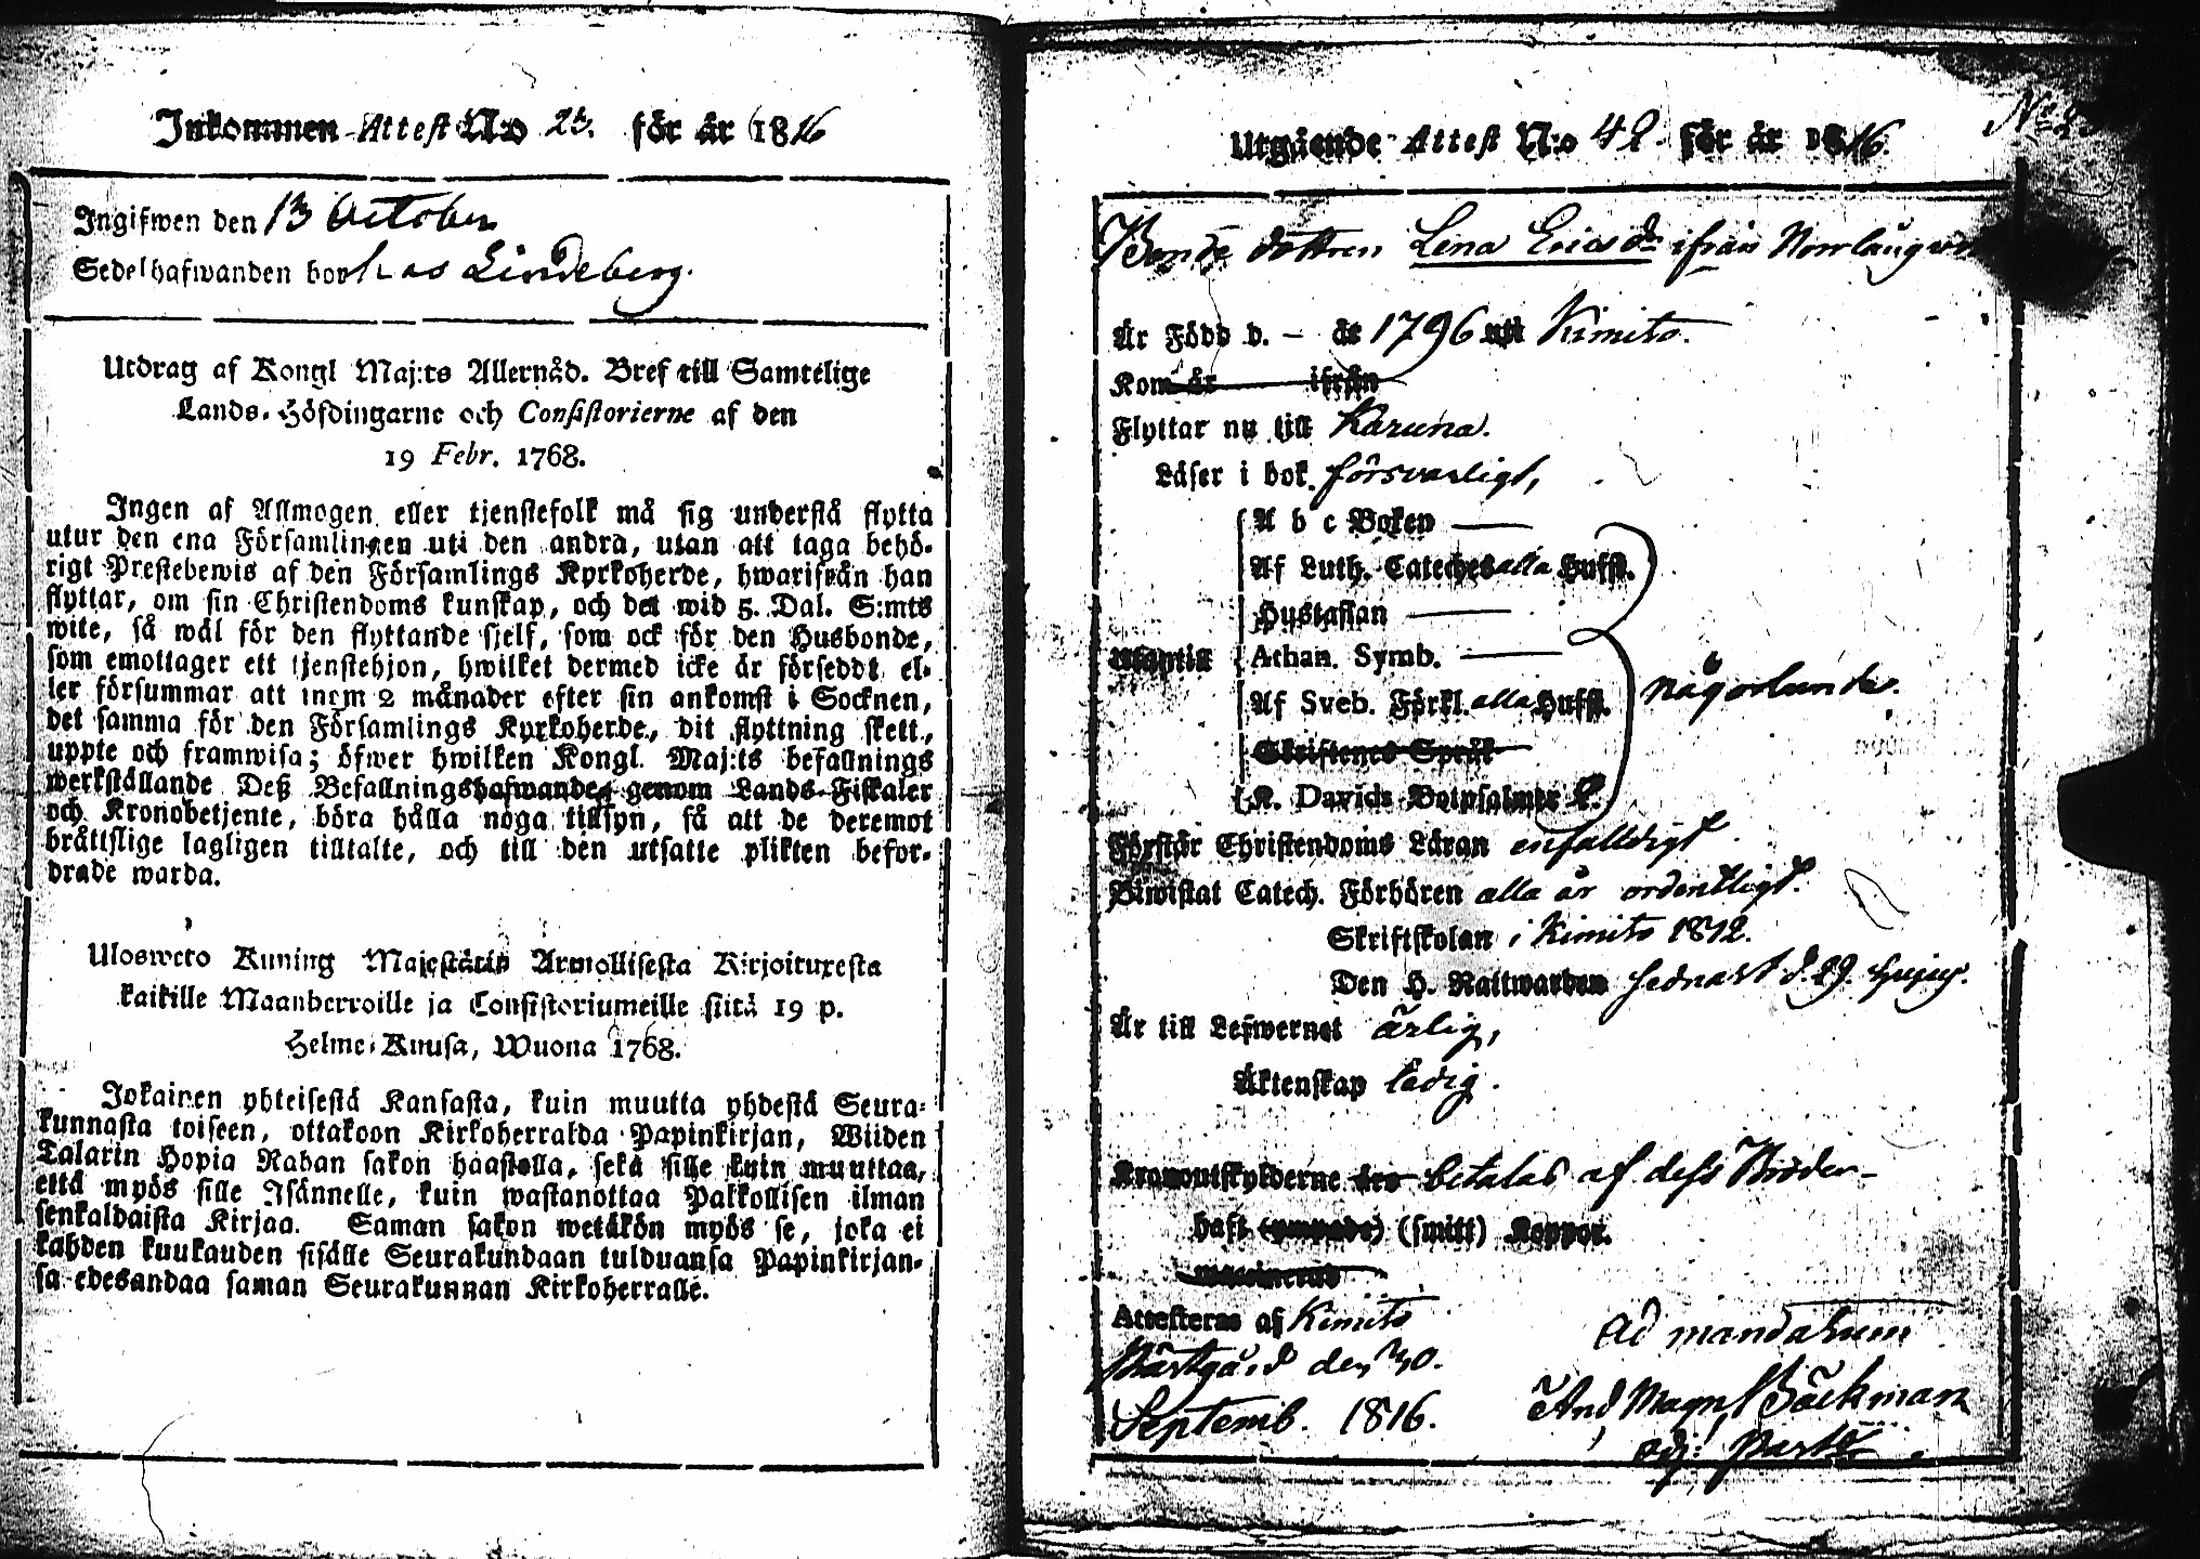 Inkommen Attest N:o 25. för år 1816
Ingifwen den 13 October
Sedelhafwanden bor hos Lindeberg.
Utdrag af Kongl Maj:ts Allernåd. Bref till Samtelige
Lands-Höfdingarne och Consistorierne af den
19 Febr. 1768.
Ingen af Allmogen eller tjenstefolk må sig understå flytta
utur den ena Församlingen uti den andra, utan att taga behö-
rigt Prestebewis af den Församlings Kyrkoherde, hwarifrån han
flyttar, om sin Christendoms kunskap, och det wid 5. Dal. S:mts
wite, så wäl för den flyttande sjelf, som ock för den Husbonde,
som emottager ett tjenstehjon, hwilket dermed icke är försedt, el-
ler försummar att inom 2 månader efter sin ankomst i Socknen,
det samma för den Församlings Kyrkoherde, dit flyttning skett,
uppte och framwisa; öfwer hwilken Kongl. Maj:ts befallnings
werkställande Deß Befallningshafwande, genom Lands-Fiskaler
och Kronobetjente, böra hålla noga tillsyn, så att de deremot
bråttslige lagligen tilltalte, och till den utsatte plikten befor-
drade warda.
Ulosweto Kuning Majestätin Armollisesta Kirjoituxesta
kaikille Maanherroille ja Consistoriumeille siitä 19 p.
Helme-Kuusa, Wuona 1768.
Jokainen yhteisestä Kansasta, kuin muutta yhdestä Seura-
kunnasta toiseen, ottakoon Kirkoherralda Papinkirjan, Wiiden
Talarin Hopia Rahan sakon haastolla, sekä sille kuin muuttaa,
että myös sille Isännelle, kuin wastanottaa Palkollisen ilman
senkaldaista Kirjaa. Saman sakon wetäkön myös se, joka ei
kahden kuukauden sisälle Seurakundaan tulduansa Papinkirjan-
sa edesandaa saman Seurakunnan Kirkoherralle.
Utgående Attest N:o 42. för år 1816.
Bonde dottren Lena Ericsdr ifrån
Är Född d. – år 1796 uti Kimito.
Kom år ifrån
Flyttar nu till Karuna.
Läser i bok försvarligt,
A b c Boken
Af Luth. Cateches alla Hufst.
Hustaflan
Athan. Symb.
Utantill
Af Sveb. Förkl. alla Hufst.
någorlunda.
Skriftenes Språk
K. Davids Botpsalmer 2.
Förstår Christendoms Läran enfaldigt
Biwistat Catech. Förhören alla år ordentligt.
Skriftskolan i Kimito 1812.
Den H. Nattwarden sednast d. 29. hujus.
Är till Lefwernet ärlig,
Äktenskap ledig.
Kronoutskylderne äro betalas af dess Bröder
haft (ympade) (smitt) Koppor.
vaccinerad
Attesteras af Kimito
Prästgård den 30.
Septemb. 1816.
Ad mandatum
And. Magn. Bäckman
adj.